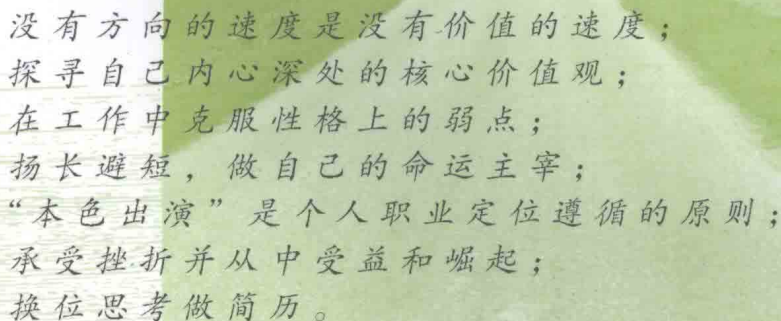 没有方向的速度是没有价值的速度；
探寻自己内心深处的核心价值观；
在工作中克服性格上的弱点；
扬长避短，做自己的命运主宰；
“本色出演”是个人职业定位遵循的原则；
承受挫折并从中受益和崛起；
换位思考做简历。